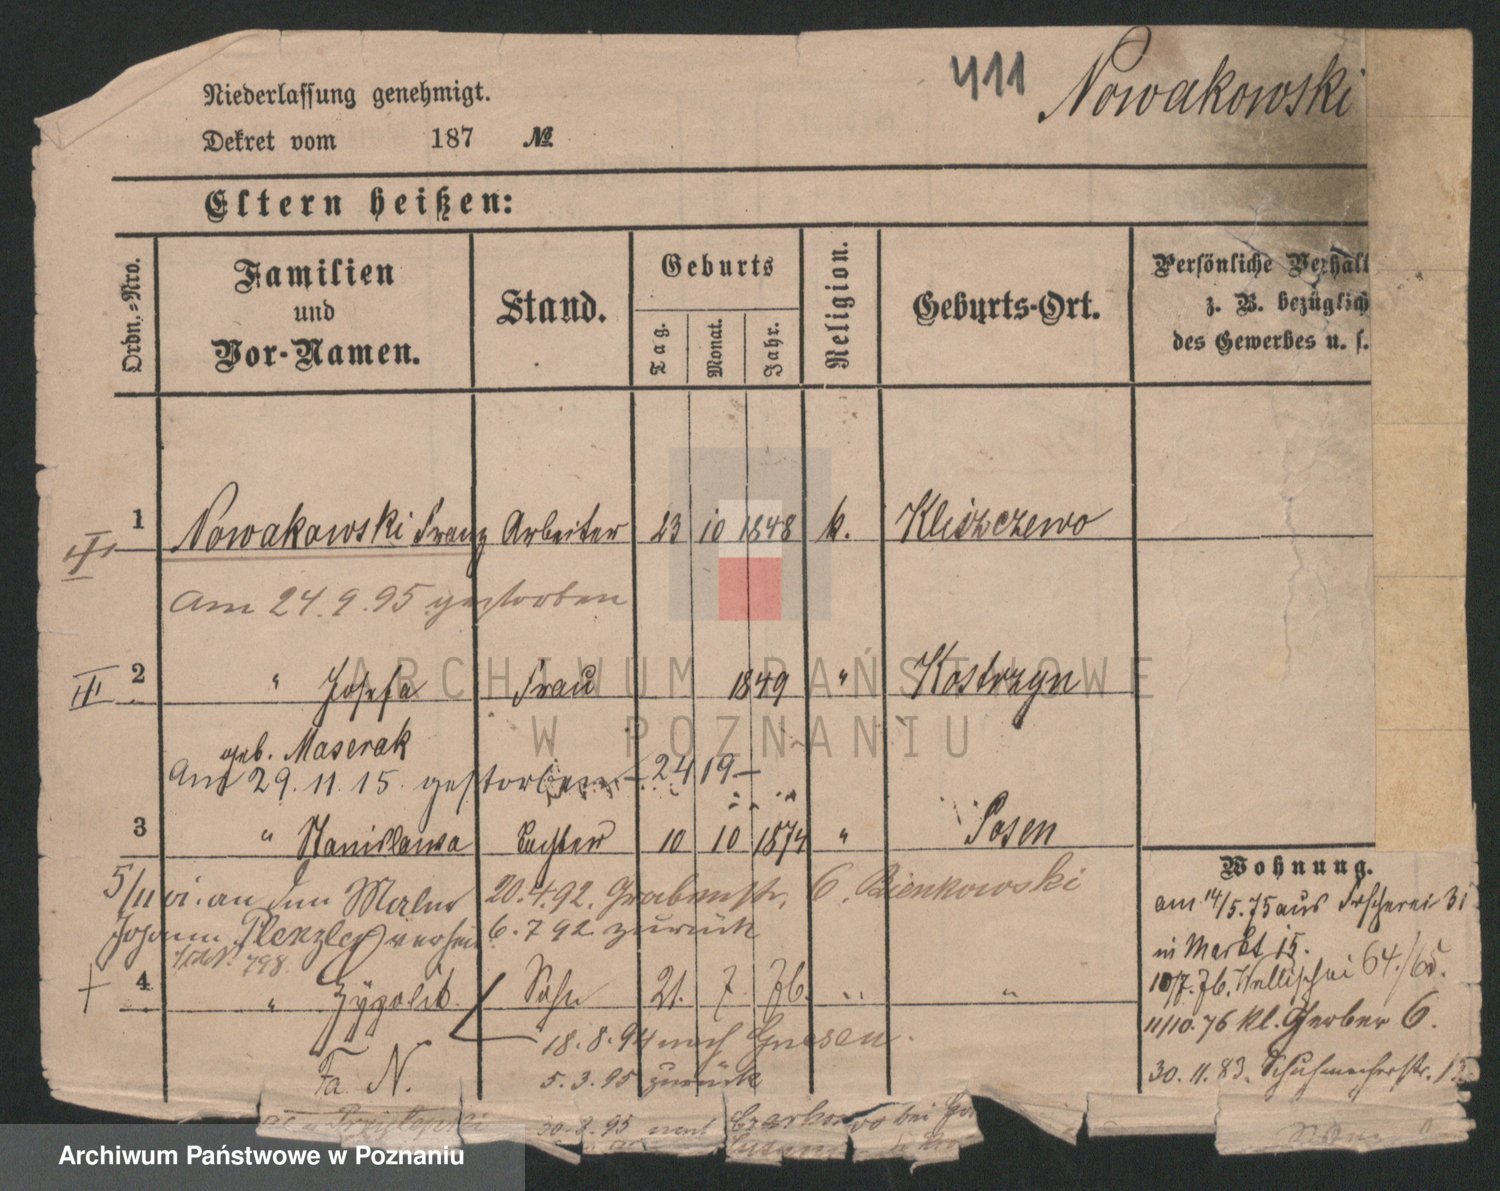 Niederlassung genehmigt.
411 Nowakowski
Dekret vom 187 №
Eltern heißen:
Ordn.-Nro.
Familien
und
Vor-Namen.
Stand.
Geburts
Tag.
Monat.
Jahr.
Religion.
Geburts-Ort.
Persönliche Verhäl
z. B. bezüglich
des Gewerbes u. s.
1 Nowakowski Franz Arbeiter 23 10 1848 k. Kliszczewo
Am 24.9.95 gestorben
2 " Josefa Frau 1849 " Kostrzyn
geb. Maserak
Am 29.11.15. gestorben – 24 19 –
3 " Stanislawa Tochter 10 10 1874 " Posen
5/11 vi. an den Maler 20.4.92. Grabenstr. 6. Bienkowski
Johann Plenzler verheir. 6.7 92 zurück
798.
4 " Zygolit. Sohn 21. 7. 76. " "
18.8.94 nach Gnesen.
Fa. N. 5.3.95 zurück
30.8.95 nach bei
Wohnung.
am 14/5.75 aus Fischerei 31
in Markt 15.
10/7.76. 64/65.
11/10.76 kl. Gerber 6.
30.11.83. Schuhmacherstr. 1
ARCHIWUM PAŃSTWOWE
W POZNANIU
Archiwum Państwowe w Poznaniu